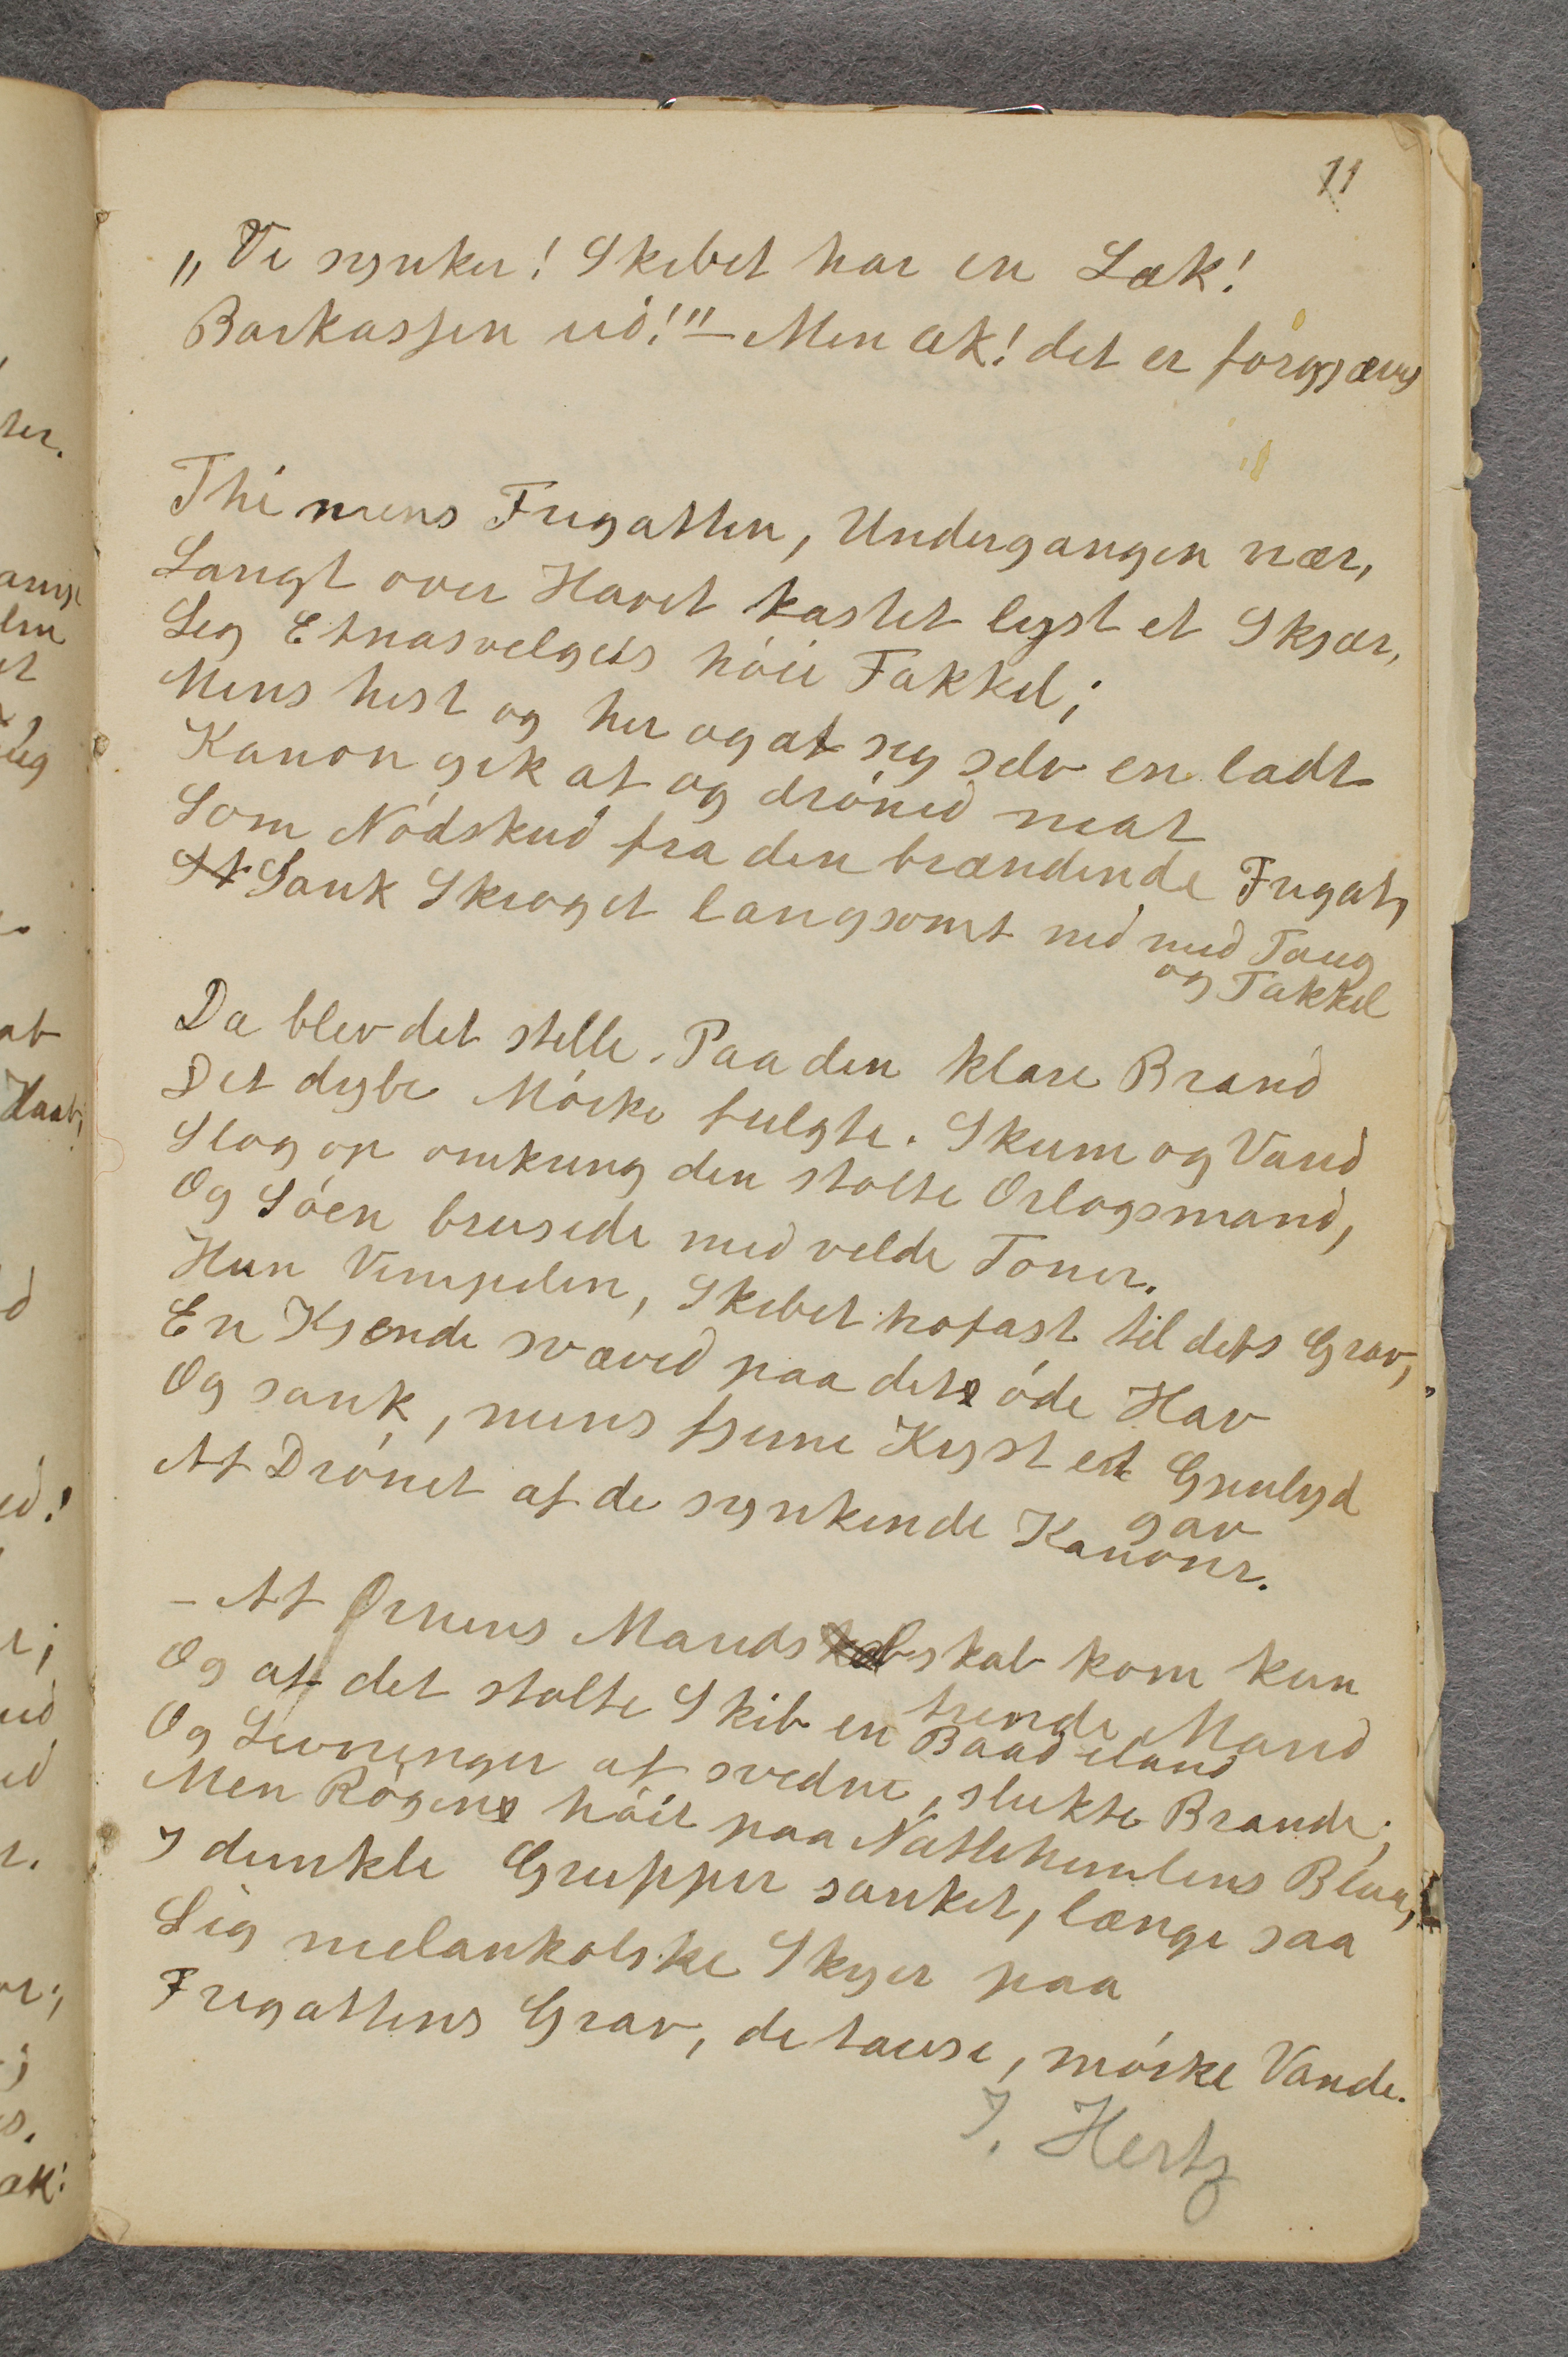 11
„Vi synker! Skibet har en Læk!
Barkassen ud!" — Men ak! det er forgjæves
Thi mens Fregatten, Undergangen nær,
Langt over Havet kastet lyst et Skjær,
Lig Etnasvelgets höie Fakkel;
Mens hist og her og af sig selv en ladt
Kanon gik af og dröned mat
Som Nödskud fra den brændende Fregat,
Sank Skroget langsomt ned med Taug
og Takkel
Da blev det stille. Paa den klare Brand
Det dybe Mörke fulgte. Skum og Vand
Slog op omkring den stolte Orlogsmand,
Og Söen brusede med vilde Toner.
Kun Vimpelen, Skibet trofast til dets Grav,
En Kjende svæved paa det öde Hav
Og sank, mens fjerne Kyst et Genlyd
gav
Af Drönet af de synkende Kanoner.
– Af Ørnens Mandskab kom kun
trende Mand
Og af det stolte Skib en Baad iland
Og Levninger af svedne, slukte Brande;
Men Rögen höit paa Nattehimlens Blaa,
I dunkle Grupper sanket, længe saa
Lig melankolske Skyer paa
Fregattens Grav, de tause, mörke Vande.
J. Hertz
ter.
et
ab
Haab,
ak!